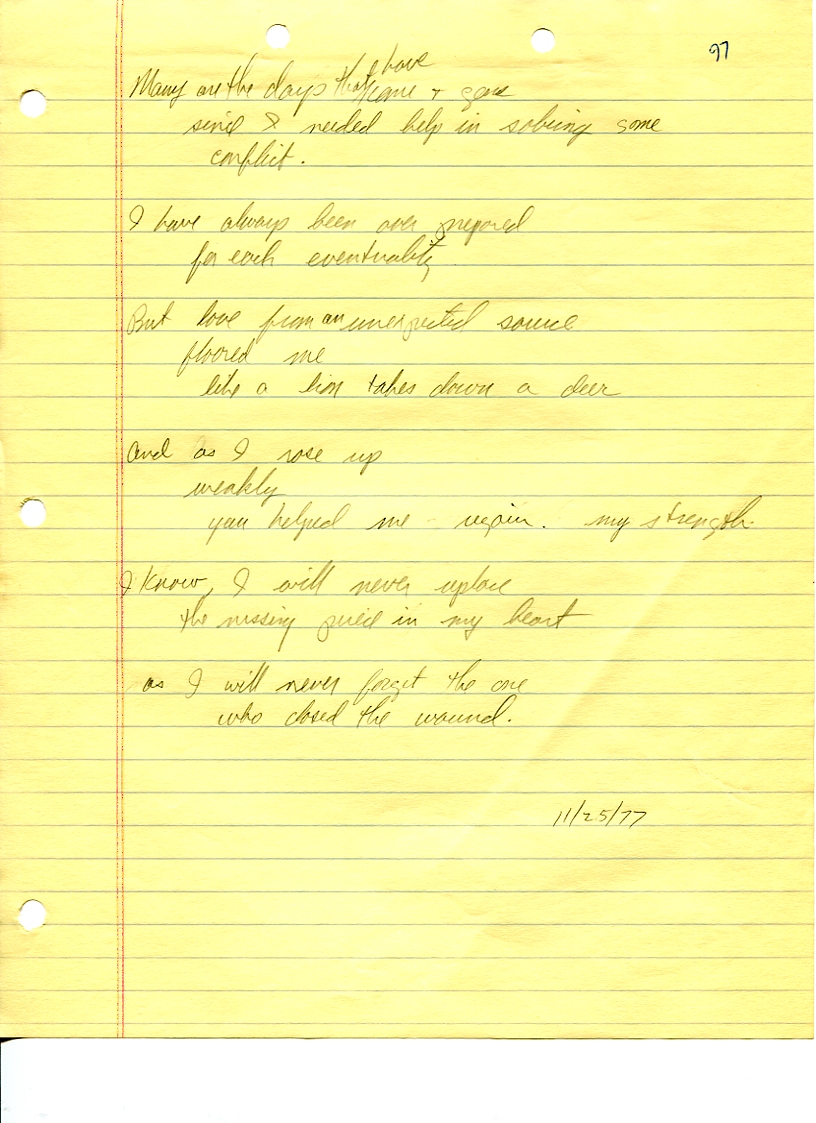 97
Many are the days that have come + gone
since I needed help in solving some
conflict.
I have always been over prepared
for each eventuality
But love from an unexpected source
floored me
like a lion takes down a deer
and as I rose up
weakly
you helped me regain. my strength.
I know, I will never replace
the missing piece in my heart
as I will never forget the one
who closed the wound.
11/25/77